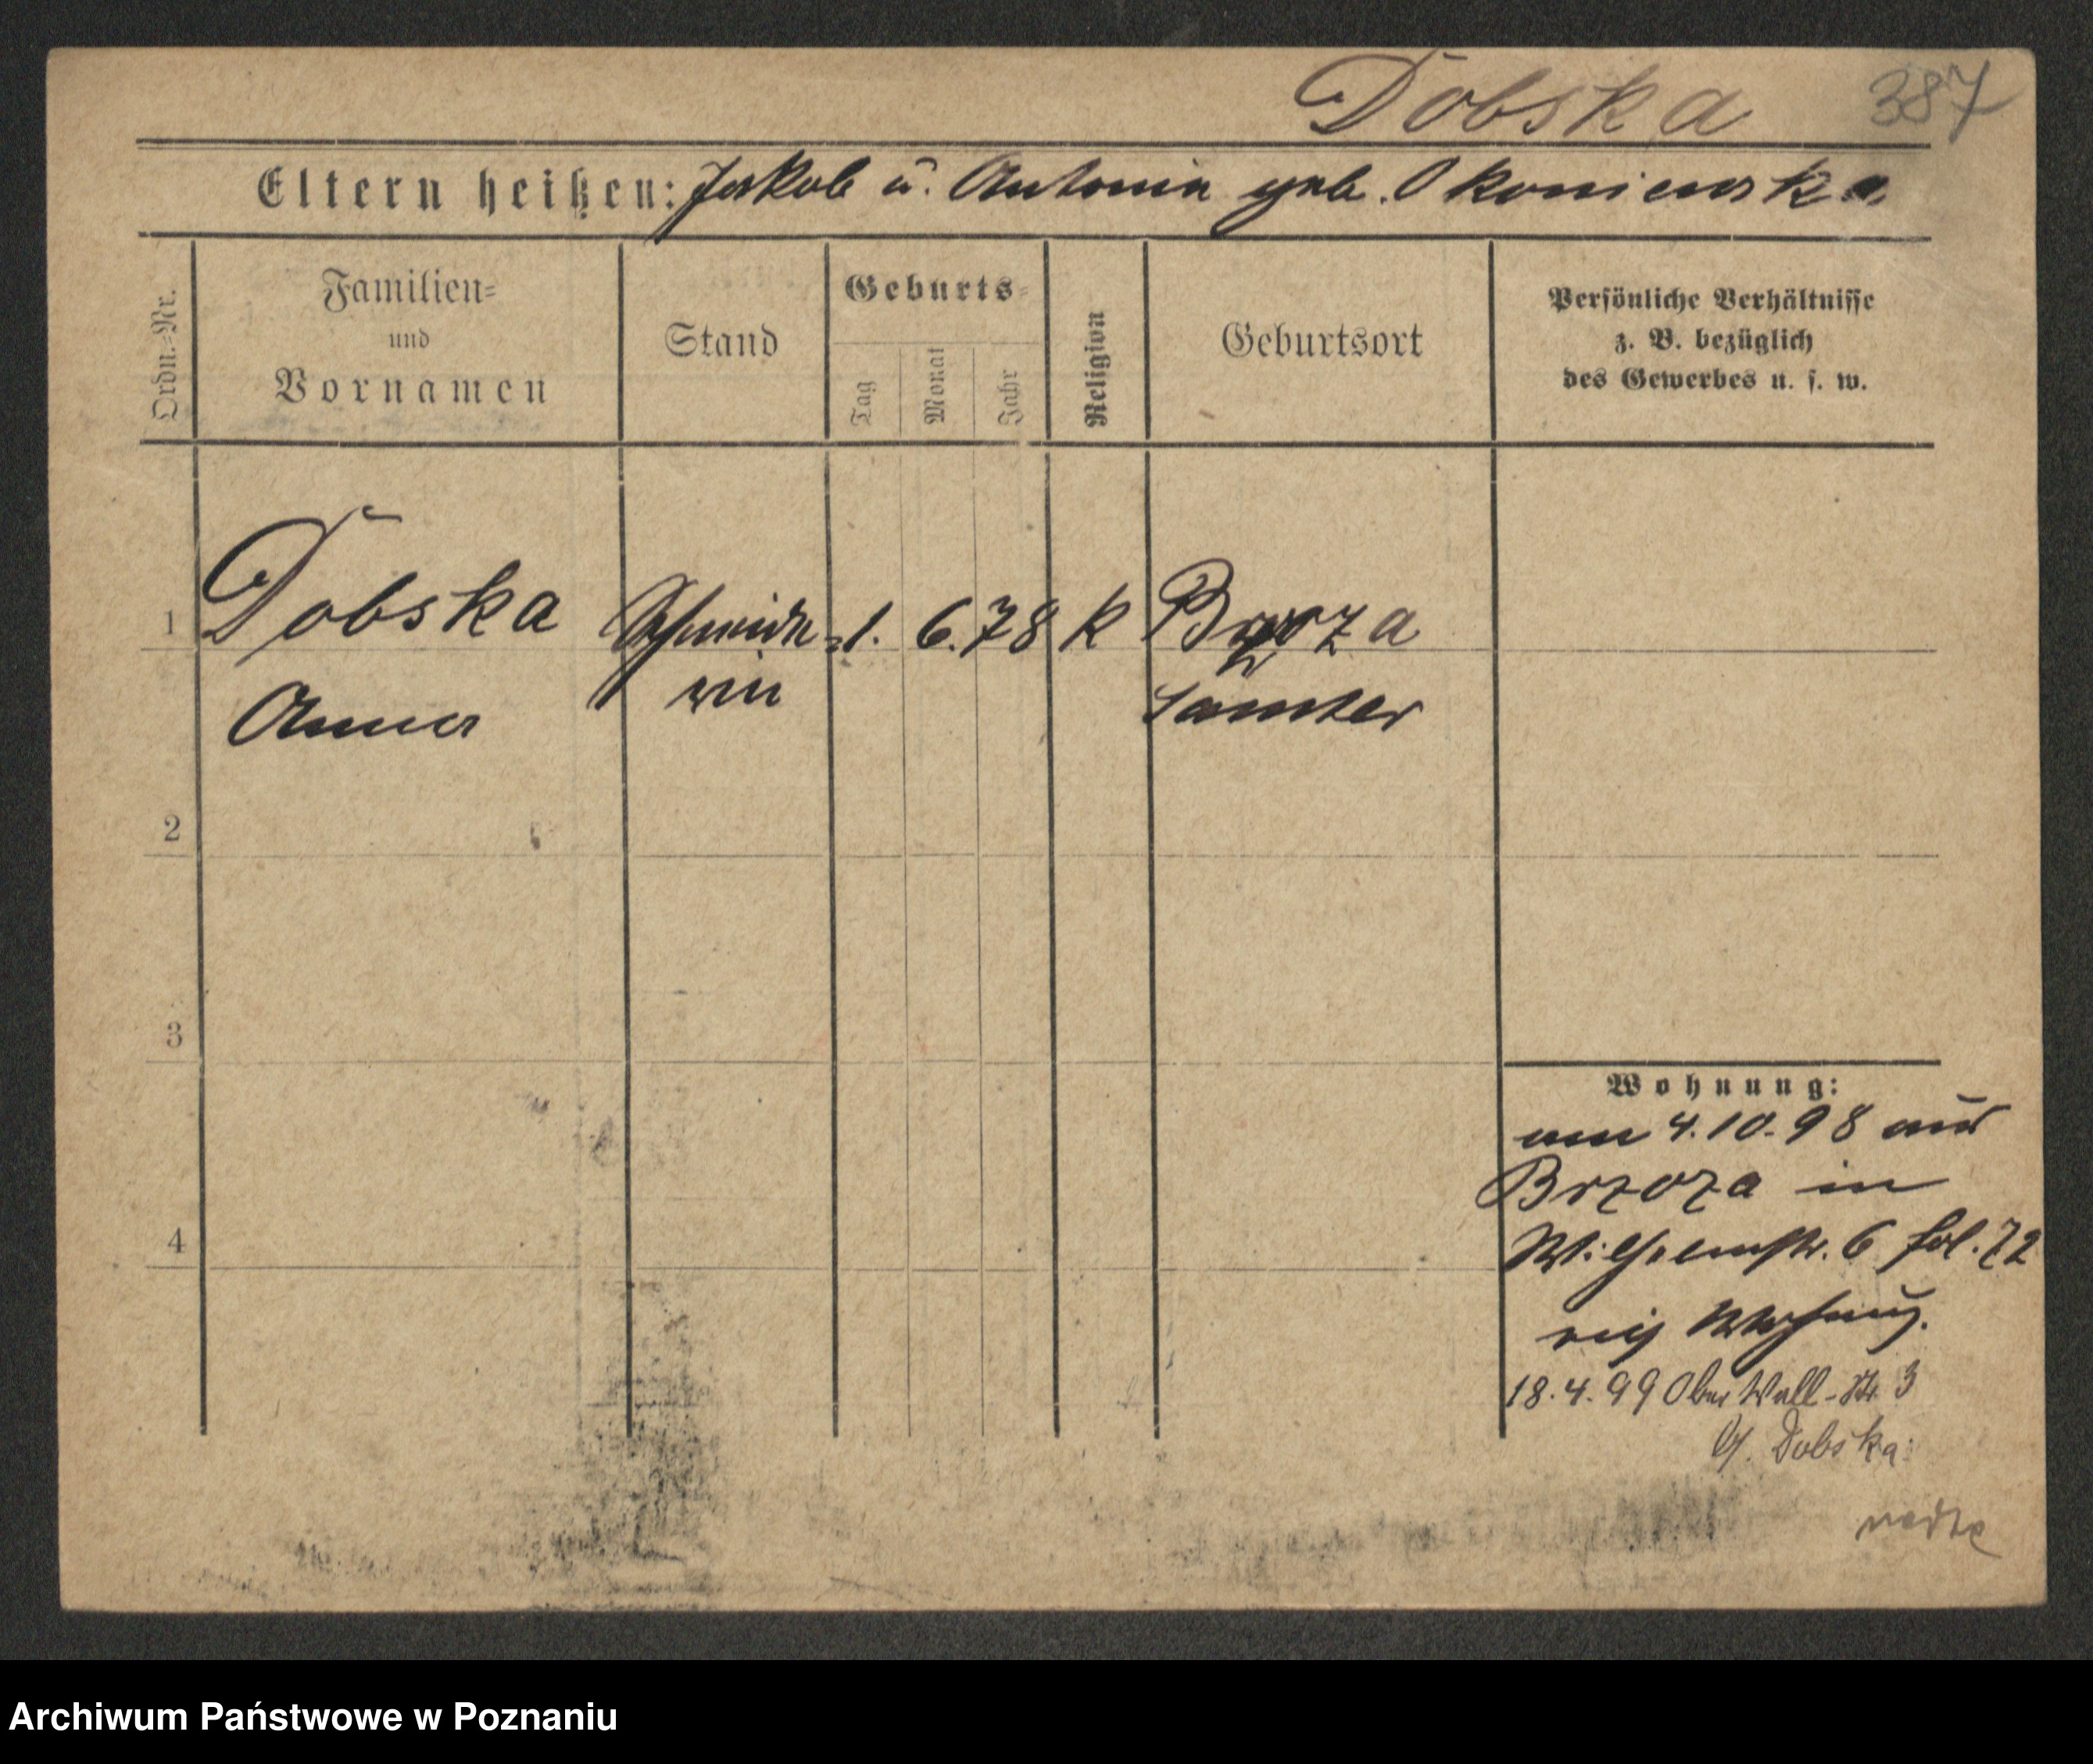 Dobska 387
Eltern heißen: Jakob u. Antonia geb. Okoniewska
Ordn.=Nr.
Familien=
und
Vornamen
Stand
Geburts=
Tag
Monat
Jahr
Religion
Geburtsort
Persönliche Verhältnisse
z. B. bezüglich
des Gewerbes u. s. w.
1 Dobska Schneide= 1. 6. 78 K Brzoza
Anna rin Samter
2
3
4
Wohnung:
am 4.10.98 aus
Brzoza in
Wilhelmstr. 6 fol. 72
Wohnung.
18.4.99 Ober Wall-Str. 3
Dobska